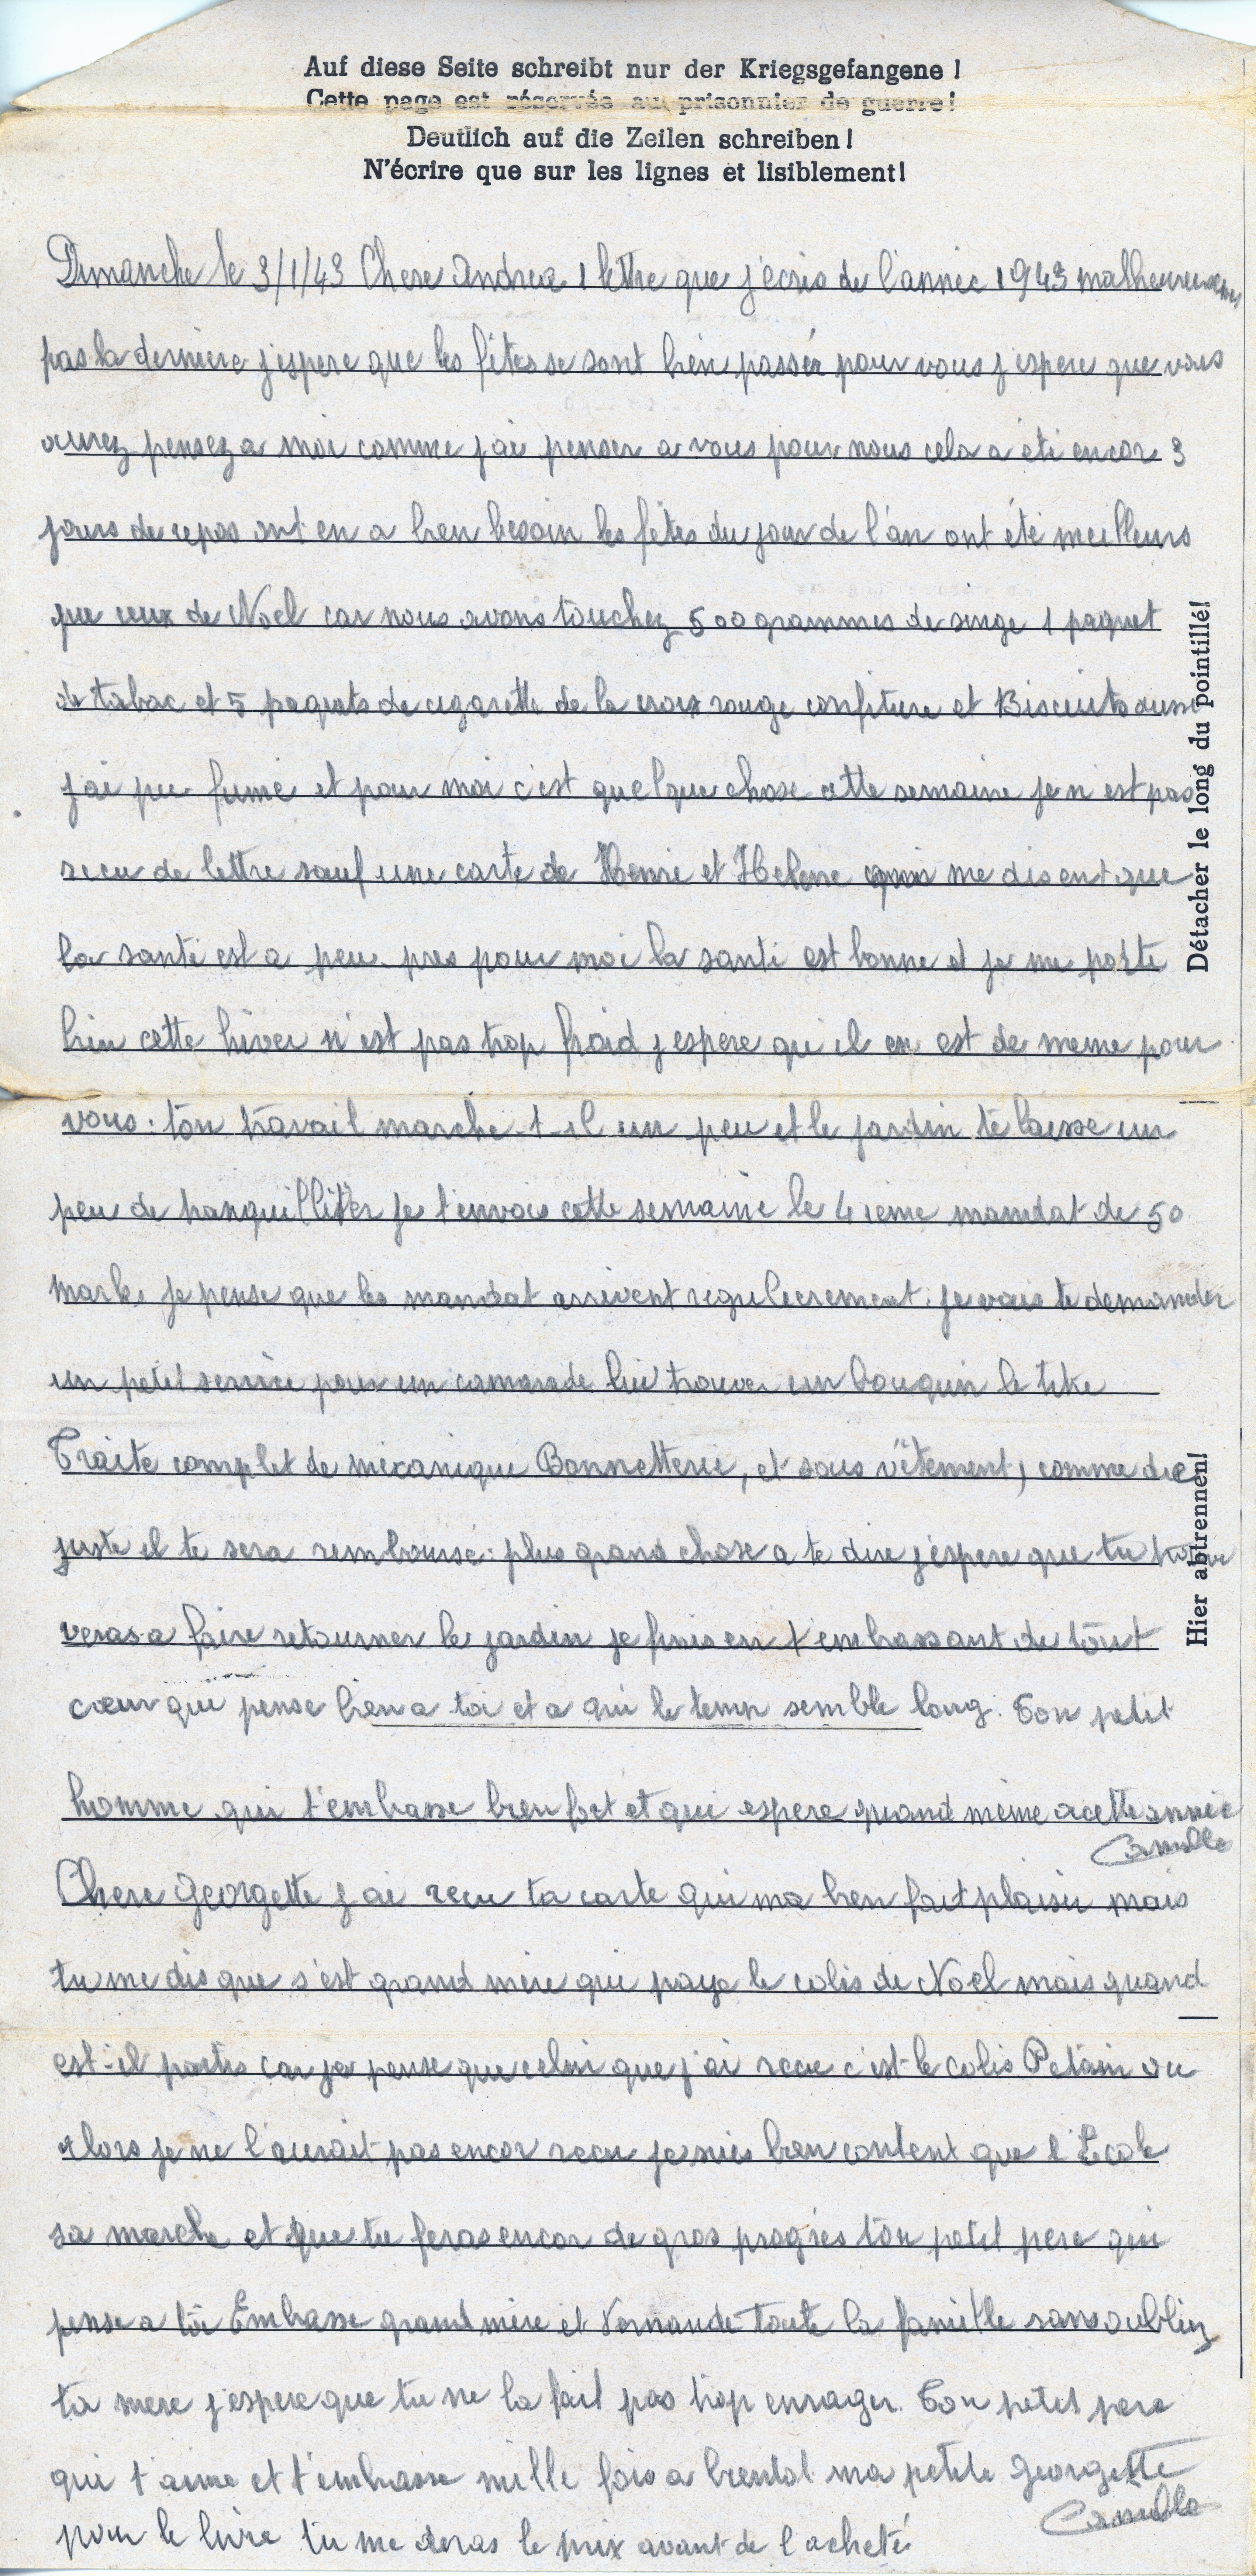 Auf diese Seite schreibt nur der Kriegsgefangene !
Cette page est réservée au prisonnier de guerre !
Deutlich auf die Zeilen schreiben !
N'écrire que sur les lignes et lisiblement!
Dimanche le 3/1/43 Chere Andrea 1 lettre que j'écris de l'année 1943 malheureusement
pas la derniere j'espere que les fêtes se sont bien passér pour vous j'espere que vous
aurez pensez a moi comme j'ai penser a vous pour nous cela a été encore 3
jours de repos ont en a bien besoin les fêtes du jour de l'an ont été meilleurs
que ceux de Noel car nous avons touchez 500 grammes de singe 1 paquet
de tabac et 5 paquets de cigarette de la croix rouge confiture et Biscuits aussi
j'ai pu fumé et pour moi c'est quelque chose cette semaine je n'est pas
recu de lettre sauf une carte de Henri et Helene qui me disent que
la santé est a peu pres pour moi la santé est bonne et je me porte
bien cette hiver n'est pas trop froid j'espere qu'il en est de meme pour
vous. ton travail marche-t-il un peu et le jardin te laisse un
peu de tranquilliter je t'envois cette semaine le 4 ieme mandat de 50
marks je pense que les mandat arrivent regulierement. je vais te demander
un petit service pour un camarade lui trouver un bouquin le titre
Traite complet de mécanique Bonnetterie, et sous vêtement, comme de
juste il te sera remboursé. plus grand chose a te dire j'espere que tu trou
veras a faire retourner le jardin je finis en t'embrassant de tout
cœur qui pense bien a toi et a qui le temp semble long. Ton petit
homme qui t'embrasse bien fort et qui espere quand même a cette année
Camille
Chere Georgette j'ai recu ta carte qui ma bien fait plaisir mais
tu me dis que s'est grand mère qui paye le colis de Noël mais quand
est-il partis car je pense que celui que j'ai recue c'est le colis Petain ou
alors je ne l'aurait pas encor recu je suis bien content que l'Ecole
sa marche et que tu feras encor de gros progrès ton petit pere qui
pense a toi Embrasse grand mère et Fernande toute la famille sans oubliez
ta mere j'espere que tu ne la fait pas trop enrager. Ton petit pere
qui t'aime et t'embrasse mille fois a bientot ma petite Georgette
Camille
pour le livre tu me diras le prix avant de l'acheté
Détacher le long du pointillé!
Hier abtrennen!